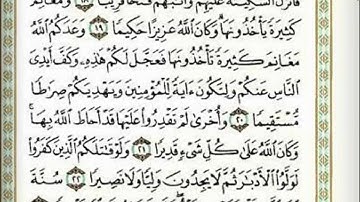 فَأَنزَلَ ٱلسَّكِينَةَ عَلَيْهِمْ وَأَثَٰبَهُمْ فَتْحًا قَرِيبًا ١٨ وَمَغَانِمَ
كَثِيرَةً يَأْخُذُونَهَا وَكَانَ ٱللَّهُ عَزِيزًا حَكِيمًا ١٩ وَعَدَكُمُ ٱللَّهُ
مَغَانِمَ كَثِيرَةً تَأْخُذُونَهَا فَعَجَّلَ لَكُمْ هَٰذِهِۦ وَكَفَّ أَيْدِىَ
ٱلنَّاسِ عَنكُمْ وَلِتَكُونَ ءَايَةً لِّلْمُؤْمِنِينَ وَيَهْدِيَكُمْ صِرَٰطًا
مُّسْتَقِيمًا ٢٠ وَأُخْرَىٰ لَمْ تَقْدِرُوا۟ عَلَيْهَا قَدْ أَحَاطَ ٱللَّهُ بِهَا ۚ
وَكَانَ ٱللَّهُ عَلَىٰ كُلِّ شَىْءٍ قَدِيرًا ٢١ وَلَوْ قَٰتَلَكُمُ ٱلَّذِينَ كَفَرُوا۟
لَوَلَّوُا۟ ٱلْأَدْبَٰرَ ثُمَّ لَا يَجِدُونَ وَلِيًّا وَلَا نَصِيرًا ٢٢ سُنَّةَ